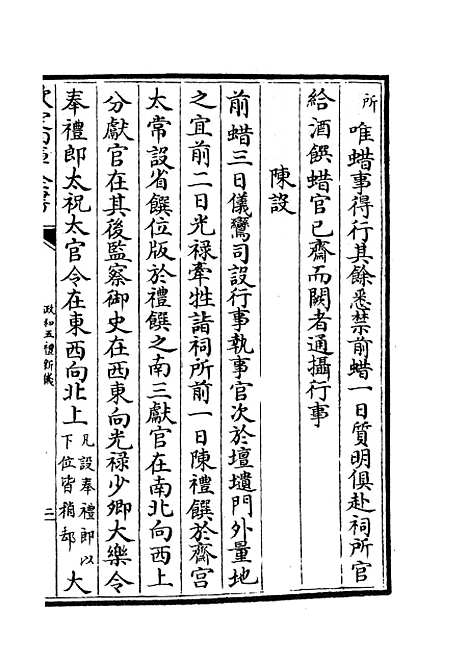 所
唯蜡事得行其餘悉禁前蜡一日質明俱赴祠所官
給酒饌蜡官已齋而闕者通攝行事
陳設
前蜡三日儀鸞司設行事執事官次於壇壝門外量地
之宜前二日光禄牽牲詣祠所前一日陳禮饌於齊宫
太常設省饌位版於禮饌之南三獻官在南北向西上
分獻官在其後監察御史在西東向光禄少卿大樂令
奉禮郎太祝太官令在東西向北上凡設奉禮郎以下位皆稍却大
政和五禮新儀
二